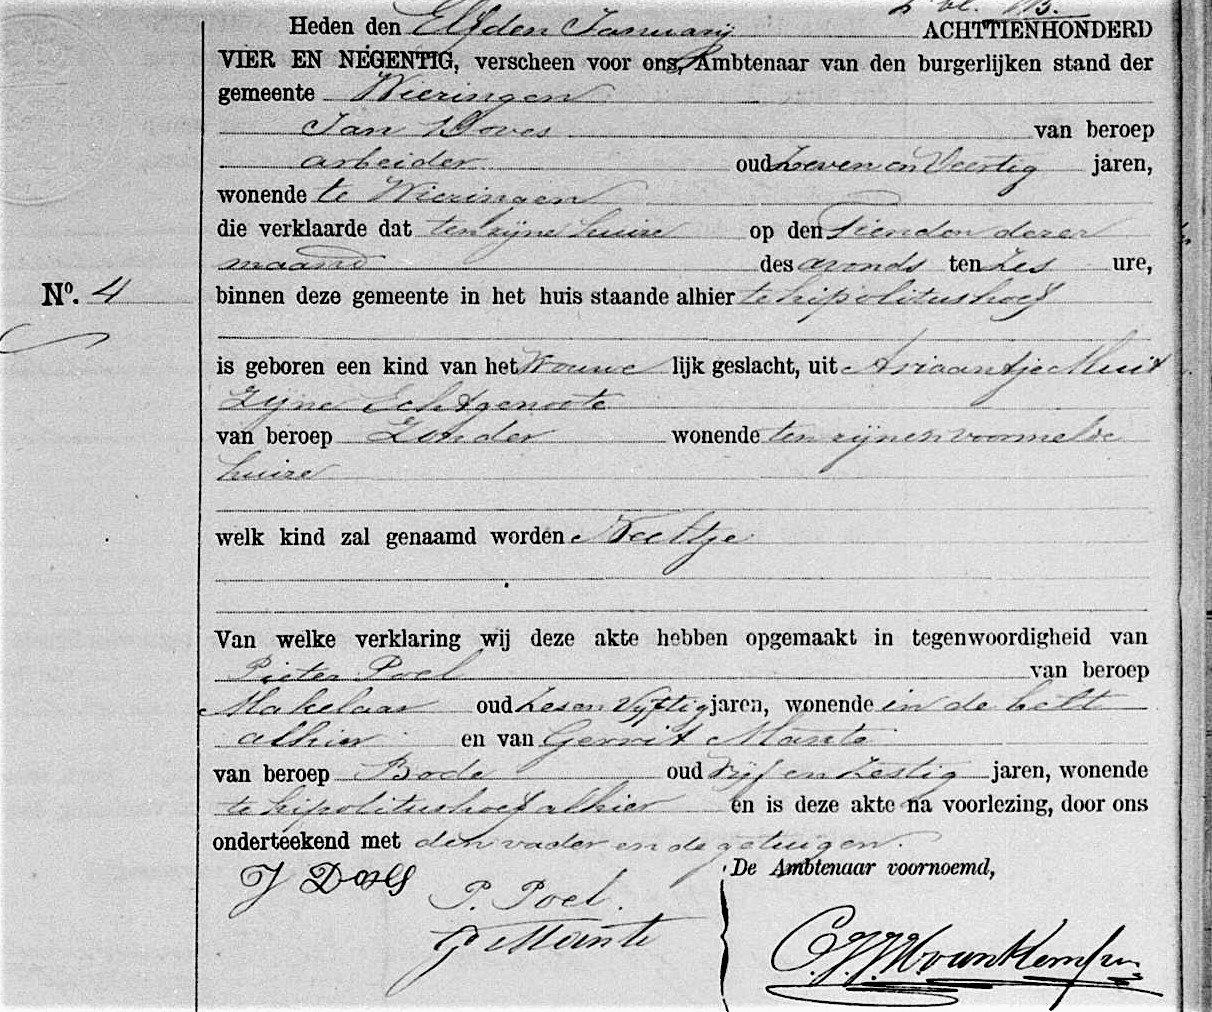 Heden den Elfden Januarij ACHTTIENHONDERD
VIER EN NEGENTIG, verscheen voor ons, Ambtenaar van den burgerlijken stand der
gemeente Wieringen
Jan Doves van beroep
arbeider oud Zeven en Veertig jaren,
wonende te Wieringen
die verklaarde dat ten zijne huize op den Tienden dezer
maand des avonds ten Zes ure,
No. 4 binnen deze gemeente in het huis staande alhier te hipolitushoef
is geboren een kind van het Vrouwe lijk geslacht, uit Ariaantje Muit
Zijne Echtgenoote
van beroep Zonder wonende ten zijnen voormelde
huize
welk kind zal genaamd worden Neeltje
Van welke verklaring wij deze akte hebben opgemaakt in tegenwoordigheid van
Pieter Poel van beroep
Makelaar oud Zes en Vijftig jaren, wonende in de helt
alhier en van Gerrit Mante
van beroep Bode oud Vijf en Zestig jaren, wonende
te hipolitushoef alhier en is deze akte na voorlezing, door ons
onderteekend met den vader en de getuigen.
De Ambtenaar voornoemd,
J Doves
P. Poel.
G Mante